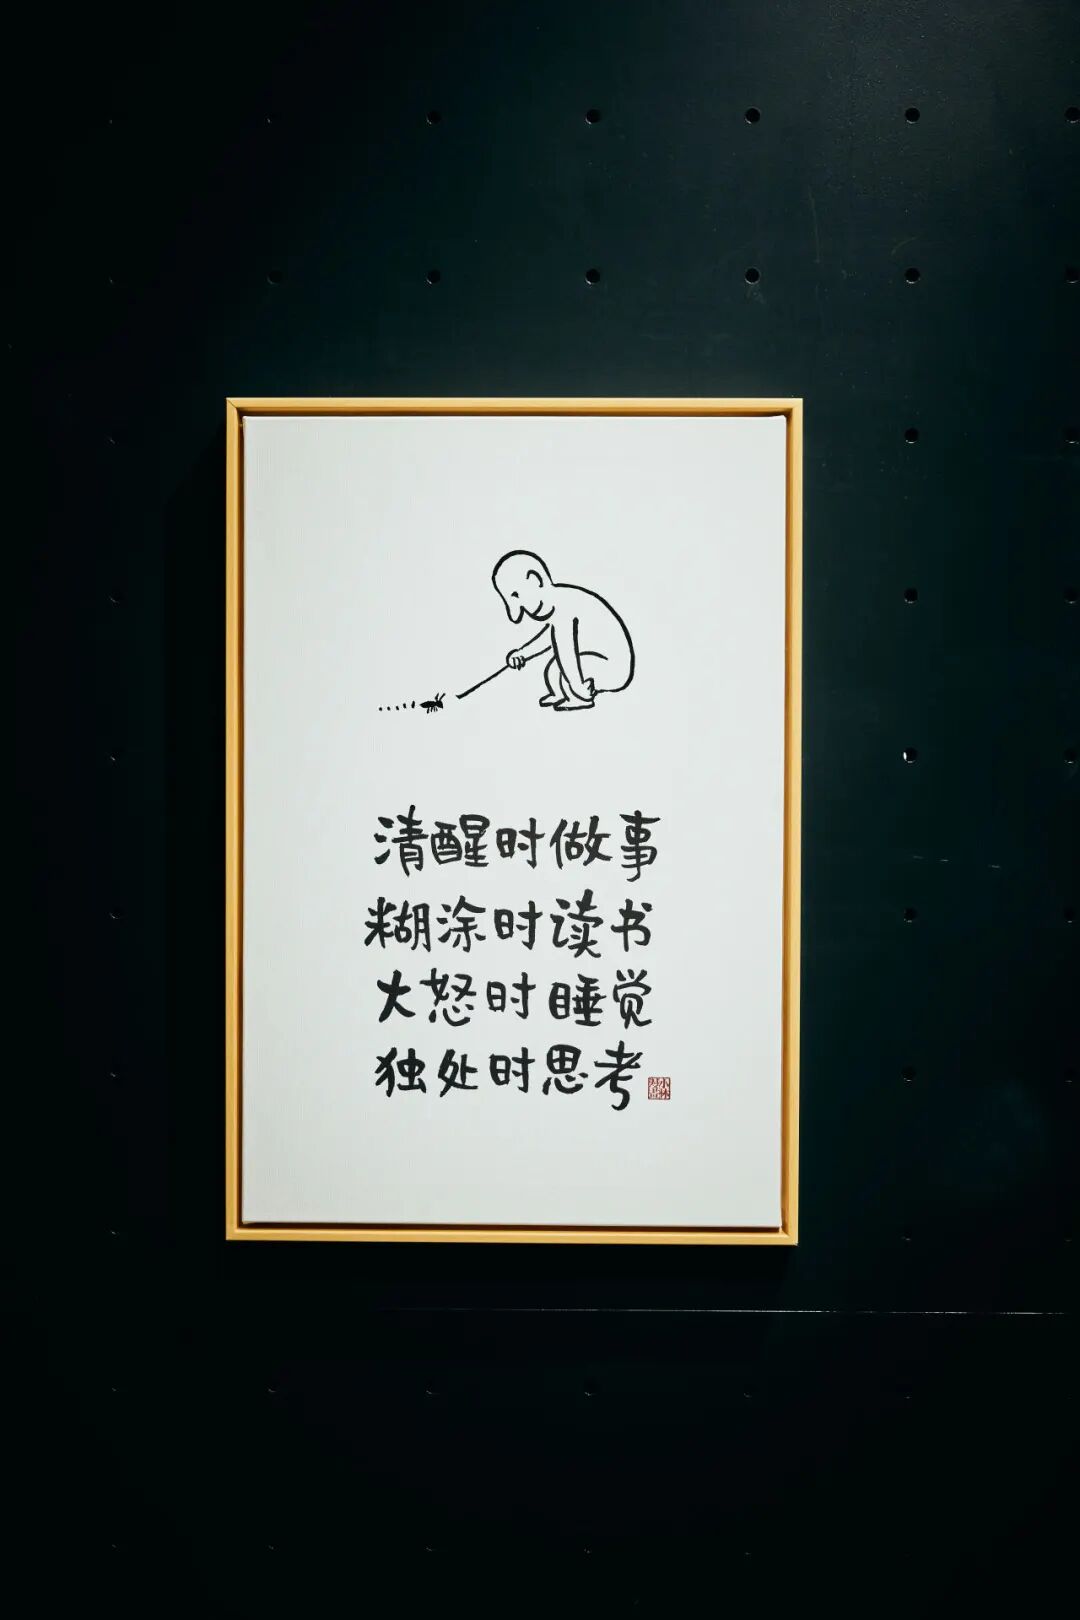 清醒时做事
糊涂时读书
大怒时睡觉
独处时思考